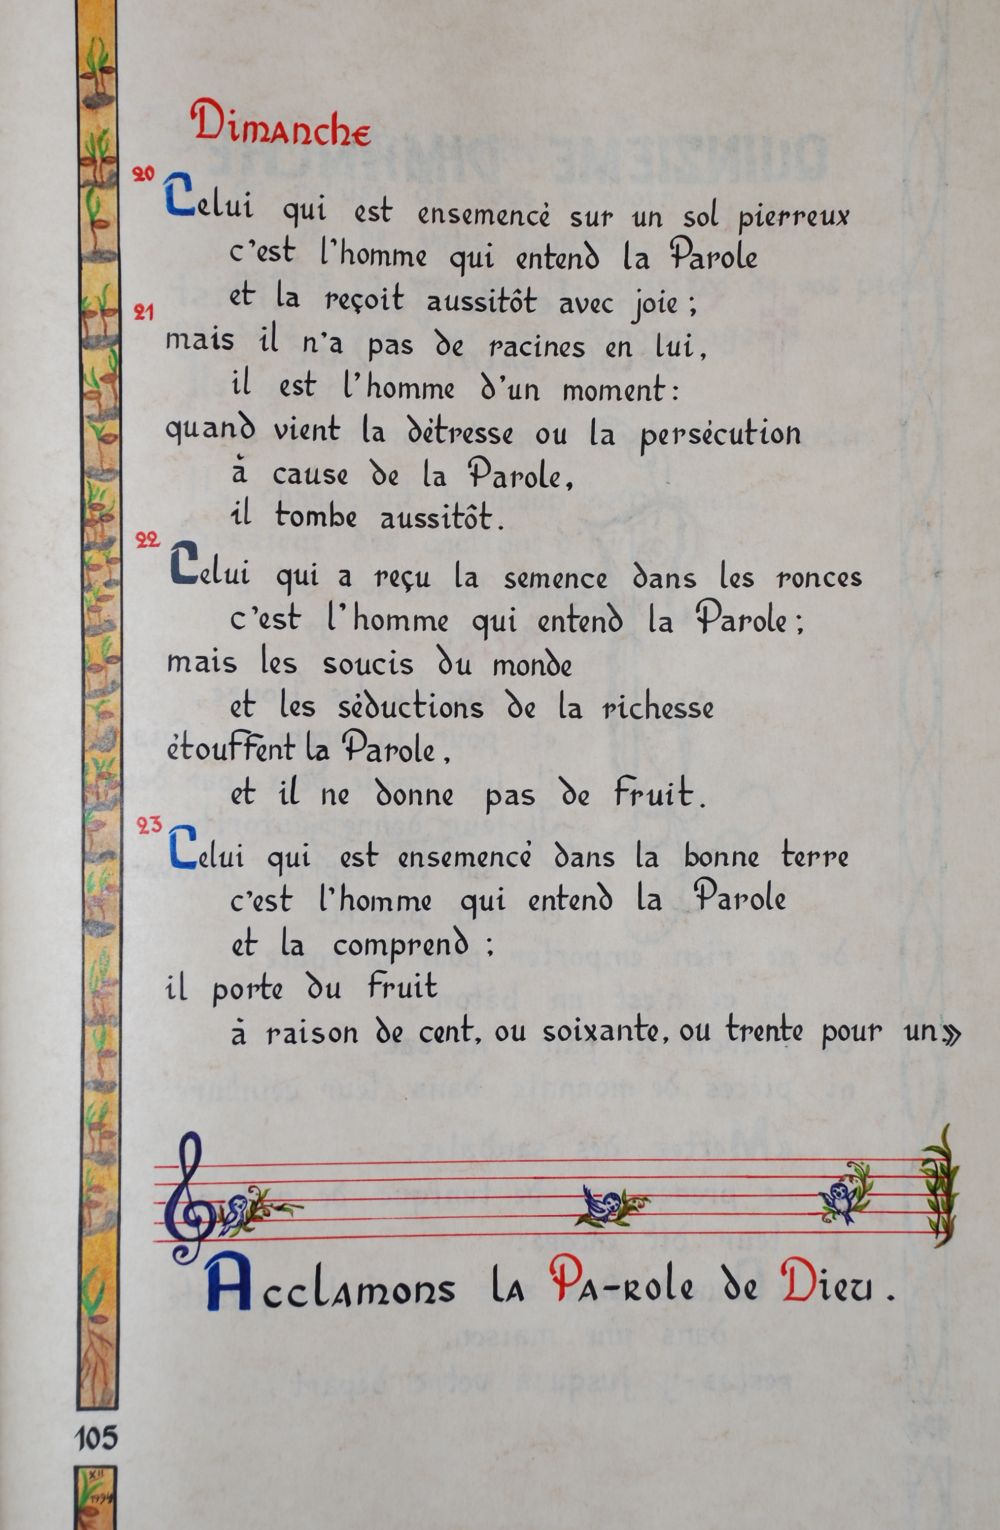 Dimanche
20
Celui qui est ensemencé sur un sol pierreux
c'est l'homme qui entend la Parole
et la reçoit aussitôt avec joie ;
21
mais il n'a pas de racines en lui,
il est l'homme d'un moment :
quand vient la détresse ou la persécution
à cause de la Parole,
il tombe aussitôt.
22
Celui qui a reçu la semence dans les ronces
c'est l'homme qui entend la Parole ;
mais les soucis du monde
et les séductions de la richesse
étouffent la Parole,
et il ne donne pas de fruit.
23
Celui qui est ensemencé dans la bonne terre
c'est l'homme qui entend la Parole
et la comprend ;
il porte du fruit
à raison de cent, ou soixante, ou trente pour un»
Acclamons la Pa-role de Dieu.
105
XII
1994